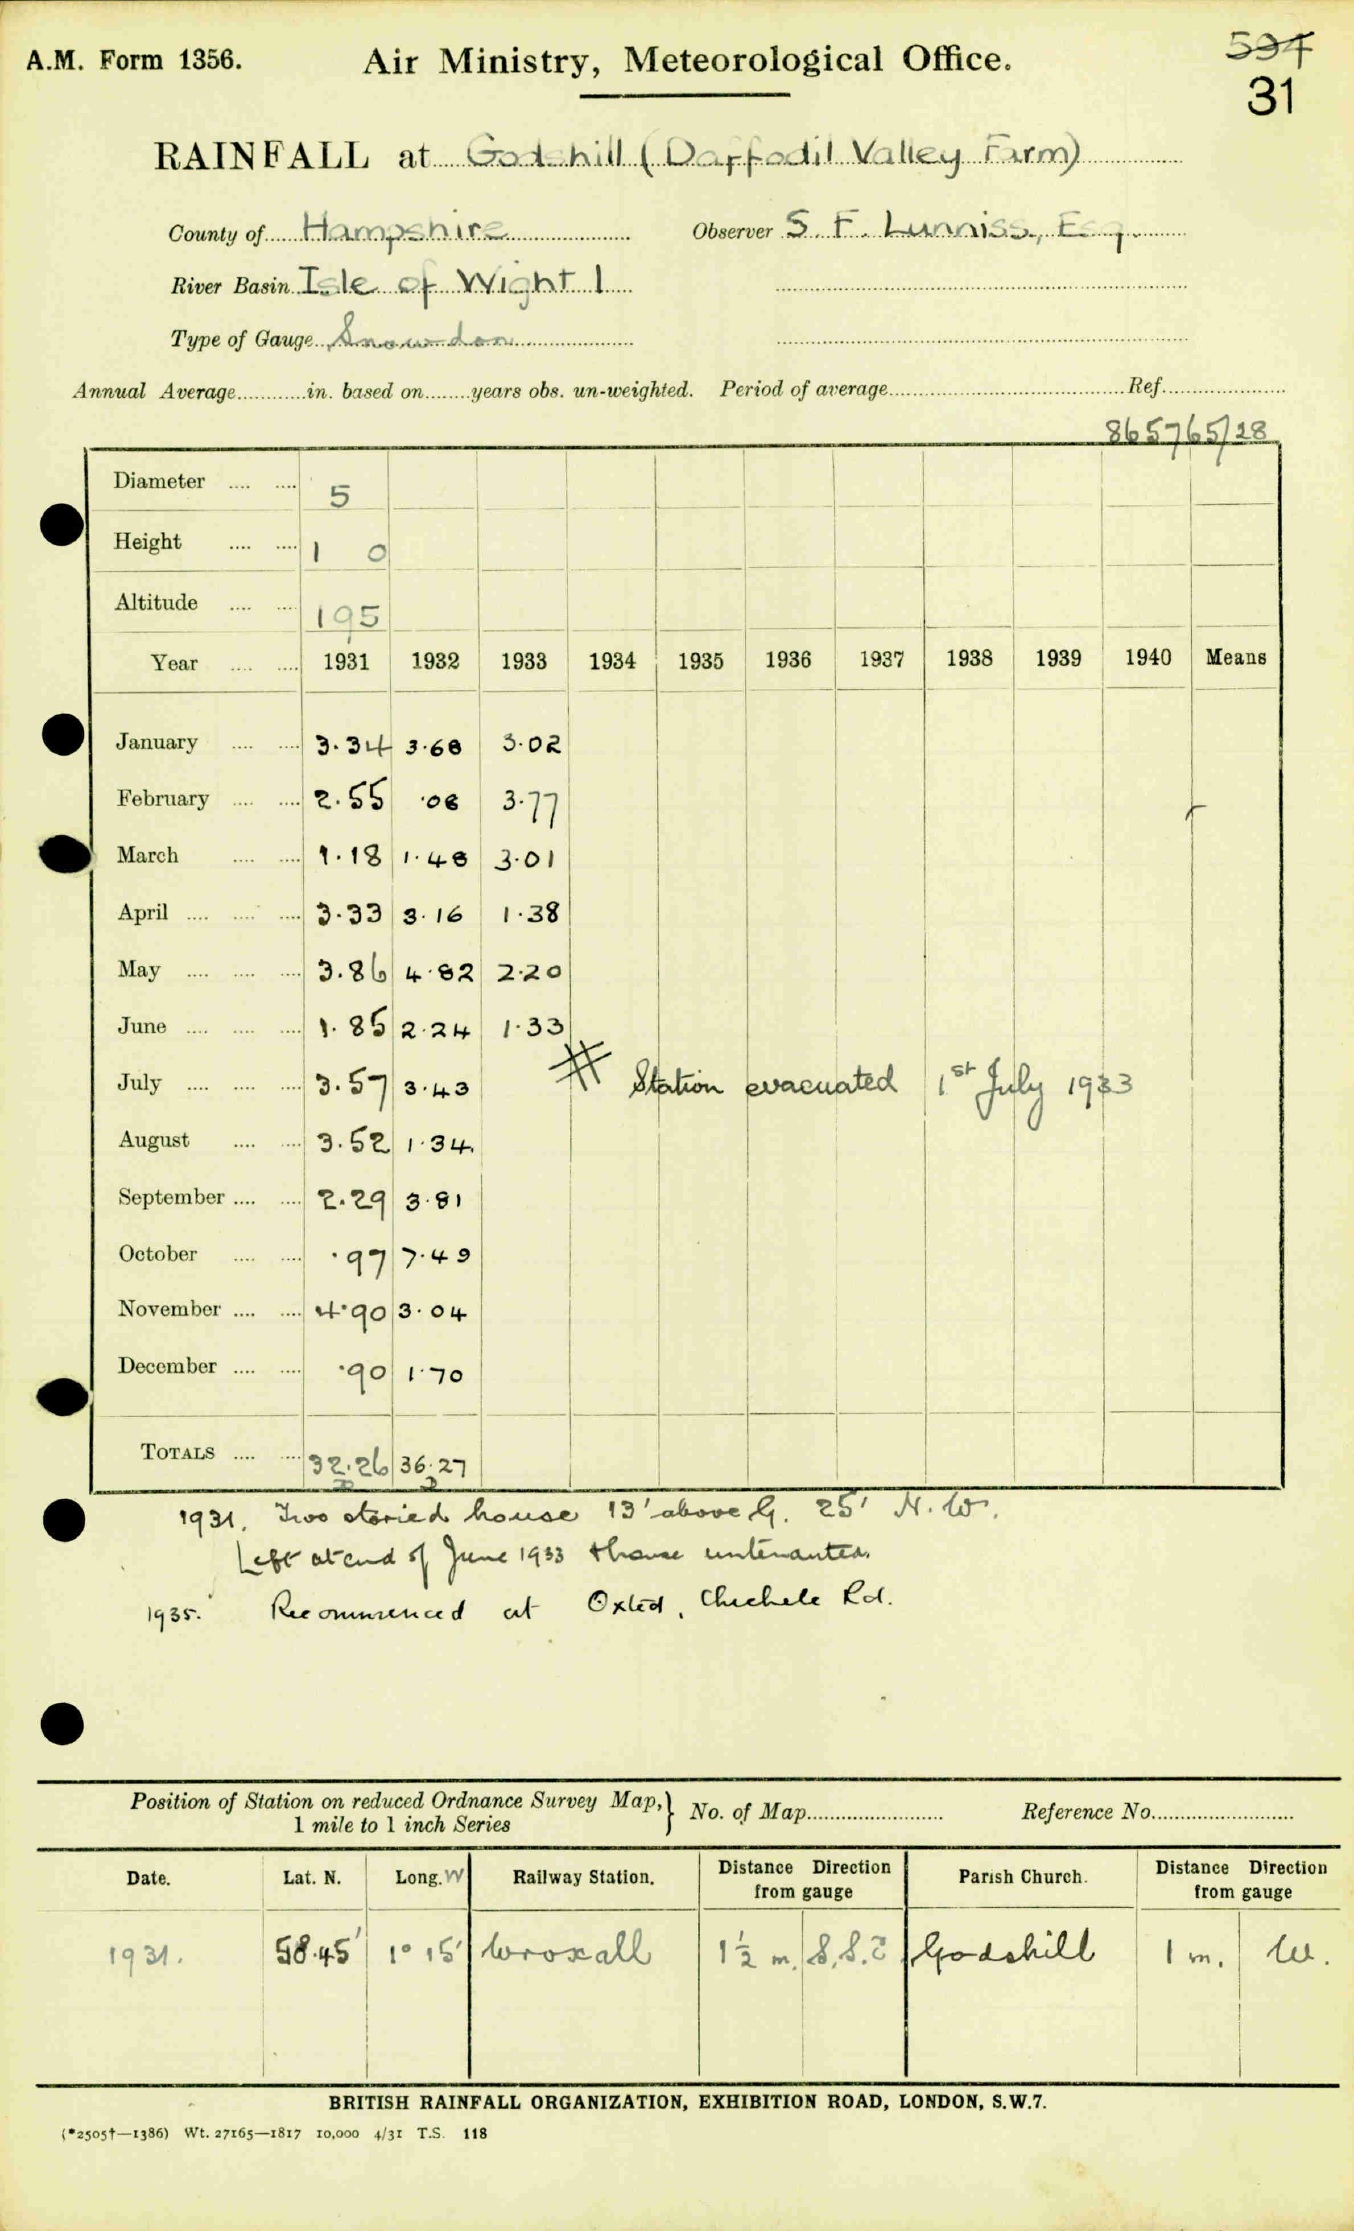 A.M. Form 1356.
Air Ministry, Meteorological Office.
594
31
RAINFALL at Godshill (Daffodil Valley Farm)
County of Hampshire Observer S. F. Lunniss, Esq.
River Basin Isle of Wight 1
Type of Gauge Snowdon
Annual Average in. based on years obs. un-weighted. Period of average Ref.
865765/28
Diameter 5
Height 1 0
Altitude 195
Year 1931 1932 1933 1934 1935 1936 1937 1938 1939 1940 Means
January 3.34 3.68 3.02
February 2.55 .08 3.77
March 1.18 1.48 3.01
April 3.33 3.16 1.38
May 3.86 4.82 2.20
June 1.85 2.24 1.33
July 3.57 3.43 Station evacuated 1st July 1933
August 3.52 1.34
September 2.29 3.81
October .97 7.49
November 4.90 3.04
December .90 1.70
TOTALS 32.26 36.27
1931. Two storied house 13' above G. 25' N.W.
Left at end of June 1933 & house untenanted.
1935. Recommenced at Oxted, Chichele Rd.
Position of Station on reduced Ordnance Survey Map, } No. of Map Reference No.
1 mile to 1 inch Series
Date. Lat. N. Long. W Railway Station. Distance Direction from gauge Parish Church. Distance Direction from gauge
1931. 58.45' 1° 15' Wroxall 1½ m. S.S.E Godshill 1 m. W.
BRITISH RAINFALL ORGANIZATION, EXHIBITION ROAD, LONDON, S.W.7.
(*2505†—1386) Wt. 27165—1817 10,000 4/31 T.S. 118